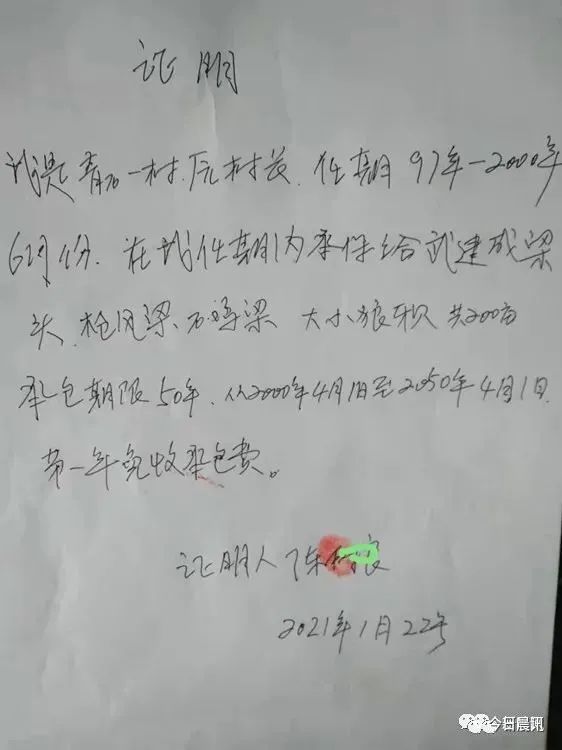 证明
我是青石一村原村长. 任期97年-2000年
6月份. 在我任期内承保给武建成梁
头. 枪风梁、石湾梁 大小狼积 共200亩
承包期限50年. 从2000年4月1日至2050年4月1日.
第一年免收承包费。
证明人 陈
2021年1月22号
今日晨讯